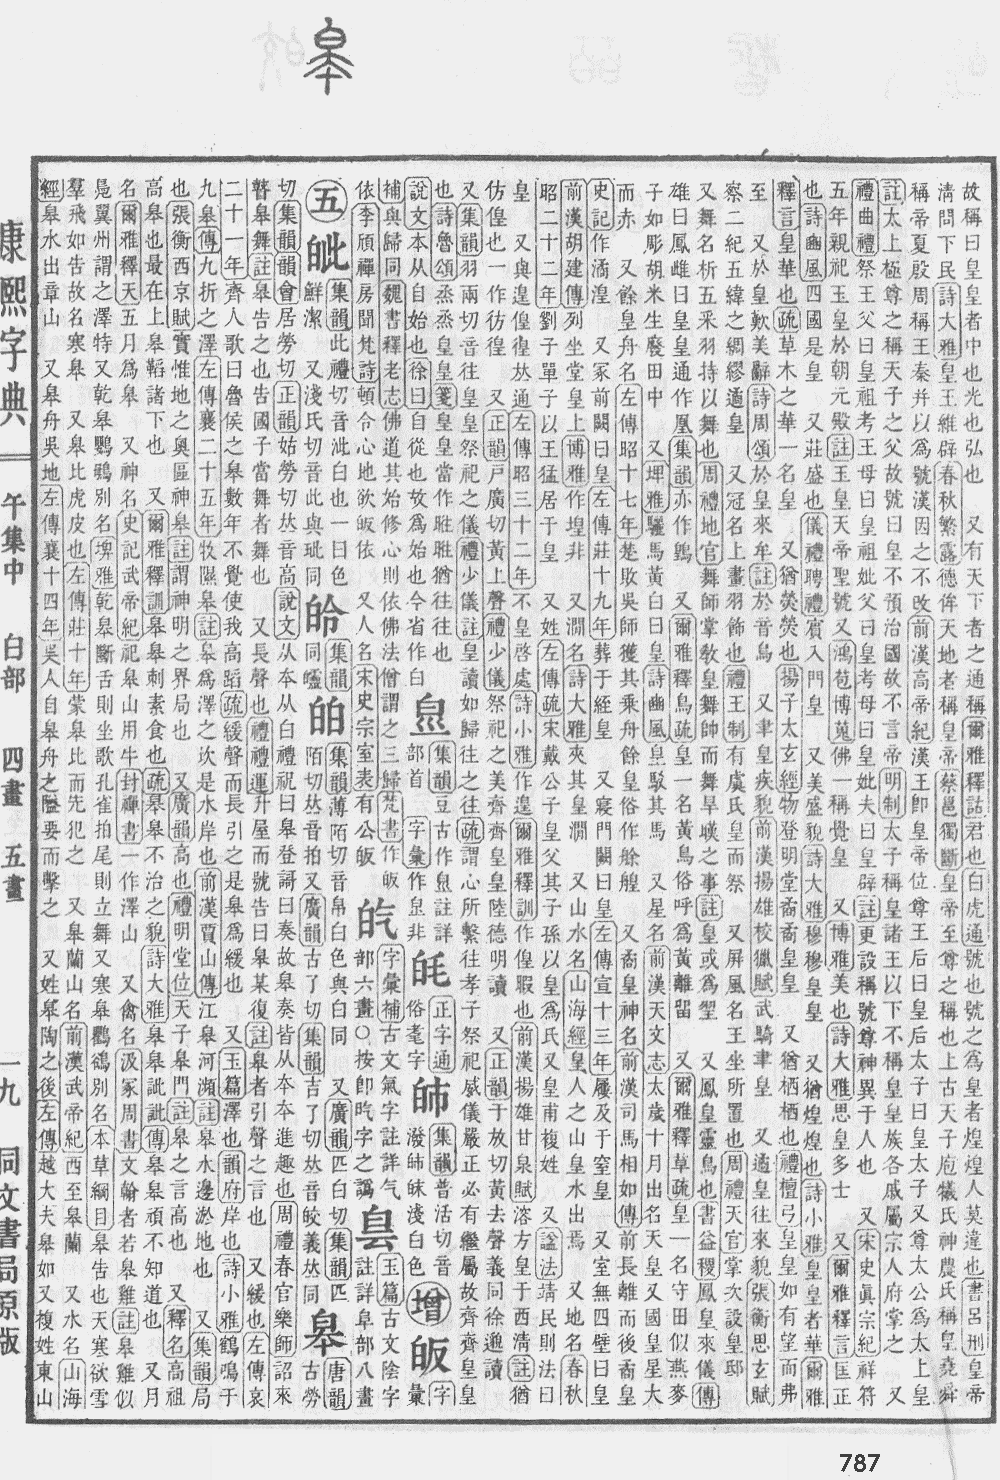 故稱曰皇皇者中也光也弘也 又有天下者之通稱爾雅釋詁君也白虎通號也號之爲皇者煌煌人莫違也書呂刑皇帝
淸問下民詩大雅皇王維辟春秋繁露德侔天地者稱皇帝蔡邕獨斷皇帝至尊之稱也上古天子庖犧氏神農氏稱皇堯舜
稱帝夏殷周稱王秦幷以爲號漢因之不改前漢高帝紀漢王卽皇帝位尊王后曰皇后太子曰皇太子又尊太公爲太上皇
註太上極尊之稱也天子之父故號曰皇不預治國故不言帝明制太子稱皇諸王以下不稱皇皇族各戚屬宗人府掌之 又
禮曲禮祭王父曰皇祖考王母曰皇祖妣父曰皇考母曰皇妣夫曰皇辟註更設稱號尊神異于人也 又宋史眞宗紀祥符
五年親祀玉皇於朝元殿註玉皇天帝聖號又鴻苞博蒐佛一稱覺皇 又博雅美也詩大雅思皇多士 又爾雅釋言匡正
也詩豳風四國是皇 又莊盛也儀禮聘禮賓入門皇 又美盛貌詩大雅穆穆皇皇 又猶煌煌也詩小雅皇皇者華爾雅
釋言皇華也疏草木之華一名皇 又猶熒熒也揚子太玄經物登明堂矞矞皇皇 又猶栖栖也禮檀弓皇皇如有望而弗
至 又於皇歎美辭詩周頌於皇來牟註於音烏 又聿皇疾貌前漢揚雄校獵賦武騎聿皇 又遹皇往來貌張衡思玄賦
察二紀五緯之綢繆遹皇 又冠名上畫羽飾也禮王制有虞氏皇而祭 又屛風名王坐所置也周禮天官掌次設皇邸
又舞名析五采羽持以舞也周禮地官舞師掌敎皇舞帥而舞旱暵之事註皇或爲䍿 又鳳皇靈鳥也書益稷鳳皇來儀傳
雄曰鳳雌曰皇皇通作凰集韻亦作 又爾雅釋鳥疏皇一名黃鳥俗呼爲黃離留 又爾雅釋草疏皇一名守田似燕麥
子如彫胡米生廢田中 又埤雅驪馬黃白曰皇詩豳風皇駁其馬 又星名前漢天文志太歲十月出名天皇又國皇星大
而赤 又餘皇舟名左傳昭十七年楚敗吳師獲其乘舟餘皇俗作艅艎 又矞皇神名前漢司馬相如傳前長離而後矞皇
史記作潏湟 又冢前闕曰皇左傳莊十九年葬于絰皇 又寢門闕曰皇左傳宣十三年屨及于窒皇 又室無四壁曰皇
前漢胡建傳列坐堂皇上博雅作堭非 又澗名詩大雅夾其皇澗 又山水名山海經皇人之山皇水出焉 又地名春秋
昭二十二年劉子單子以王猛居于皇 又姓左傳疏宋戴公子皇父其子孫以皇爲氏又皇甫複姓 又諡法靖民則法曰
皇 又與遑偟徨𠀤通左傳昭三十二年不皇啓處詩小雅作遑爾雅釋訓作偟暇也前漢揚雄甘泉賦溶方皇于西淸註猶
仿偟也一作彷徨 又正韻戸廣切黃上聲禮少儀祭祀之美齊齊皇皇陸德明讀 又正韻于放切黃去聲義同徐邈讀
又集韻羽兩切音往皇皇祭祀之儀禮少儀註皇讀如歸往之往疏謂心所繫往孝子祭祀威儀嚴正必有繼屬故齊齊皇皇
也詩魯頌烝烝皇皇箋皇皇當作暀暀猶往往也
說文本从自始也徐曰自從也故爲始也今省作白 集韻豆古作 註詳部首 字彙作 非 正字通俗耄字 集韻普活切音潑 淺白色 增 皈 字彙
補與歸同魏書釋老志佛道其始修心則依佛法僧謂之三歸梵書作皈
依李頎禪房聞梵詩頓令心地欲皈依 又人名宋史宗室表有公皈 字彙補古文氣字註詳气部六畫○按卽 字之譌 玉篇古文陰字註詳阜部八畫
五 皉 集韻此禮切音泚白也一曰色鮮潔 又淺氏切音此與玼同 集韻同 皛 集韻薄陌切音帛白色與白同 又廣韻匹白切集韻匹陌切𠀤音拍又廣韻古了切集韻吉了切𠀤音皎義𠀤同 皋 唐韻古勞
切集韻韻會居勞切正韻姑勞切𠀤音高說文从本从白禮祝曰皋登謌曰奏故皋奏皆从本本進趣也周禮春官樂師詔來
瞽皋舞註皋告之也告國子當舞者舞也 又長聲也禮禮運升屋而號告曰皋某復註皋者引聲之言也 又緩也左傳哀
二十一年齊人歌曰魯侯之皋數年不覺使我高蹈疏緩聲而長引之是皋爲緩也 又玉篇澤也韻府岸也詩小雅鶴鳴于
九皋傳九折之澤左傳襄二十五年牧隰皋註皋爲澤之坎是水岸也前漢賈山傳江皋河瀕註皋水邊淤地也 又集韻局
也張衡西京賦實惟地之奧區神皋註謂神明之界局也 又廣韻高也禮明堂位天子皋門註皋之言高也 又釋名高祖
高皋也最在上皋韜諸下也 又爾雅釋訓皋皋刺素食也疏皋皋不治之貌詩大雅皋皋訿訿傳皋皋頑不知道也 又月
名爾雅釋天五月爲皋 又神名史記武帝紀祀皋山用牛封禪書一作澤山 又禽名汲冢周書文翰者若皋雞註皋雞似
鳧翼州謂之澤特又乾皋鸚鵡別名埤雅乾皋斷舌則坐歌孔雀拍尾則立舞又寒皋鸜鵒別名本草綱目皋告也天寒欲雪
羣飛如告故名寒皋 又皋比虎皮也左傳莊十年蒙皋比而先犯之 又皋蘭山名前漢武帝紀西至皋蘭 又水名山海
經皋水出章山 又皋舟吳地左傳襄十四年吳人自皋舟之隘要而擊之 又姓皋陶之後左傳越大夫皋如又複姓東山
康熙字典 午集中 白部 四畫 五畫 一九 同文書局原版
787